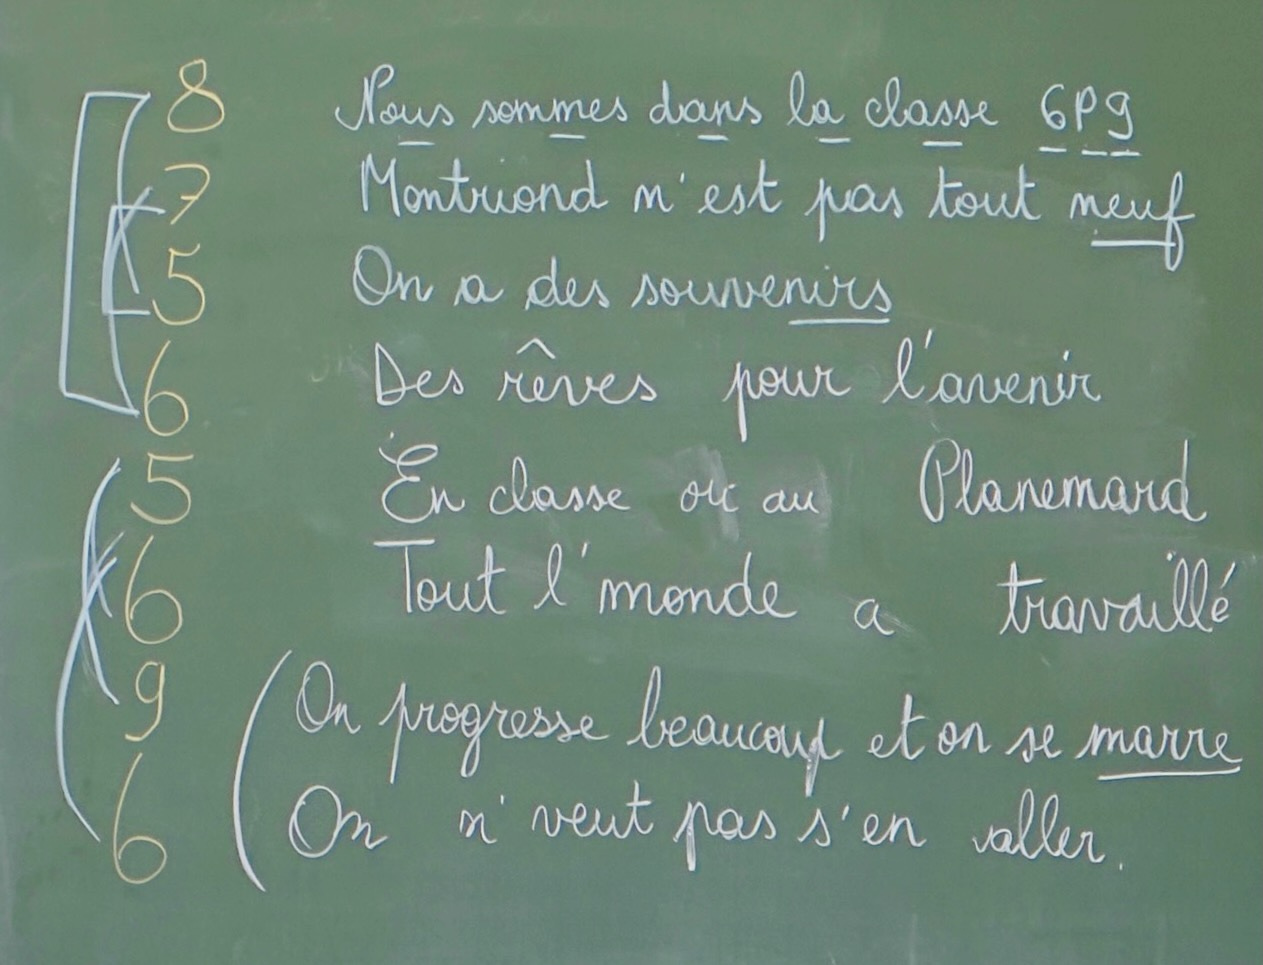 8 Nous sommes dans la classe 6P9
7 Montriond n'est pas tout neuf
5 On a des souvenirs
6 Des rêves pour l'avenir
5 En classe ou au Planemard
6 Tout l'monde a travaillé
9 On progresse beaucoup et on se marre
6 On n'veut pas s'en aller.